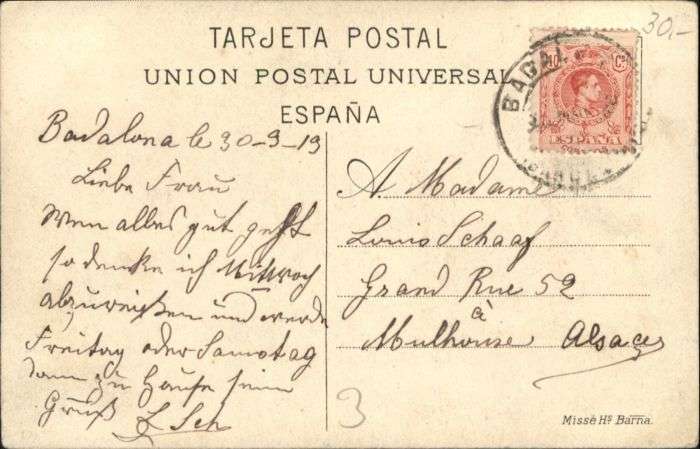 30,-
TARJETA POSTAL
UNION POSTAL UNIVERSAL
ESPAÑA
10 Cs
ESPAÑA
Badalona le 30-9-19
Liebe Frau
Wen alles gut geht
so denke ich Mittwoch
abzureißen und werde
Freitag oder Samstag
dann zu Hause sein
Gruß L Sch
A. Madame
Louis Schaaf
Grand Rue 52
à
Mulhouse Alsace
3
Missé Hs Barna.